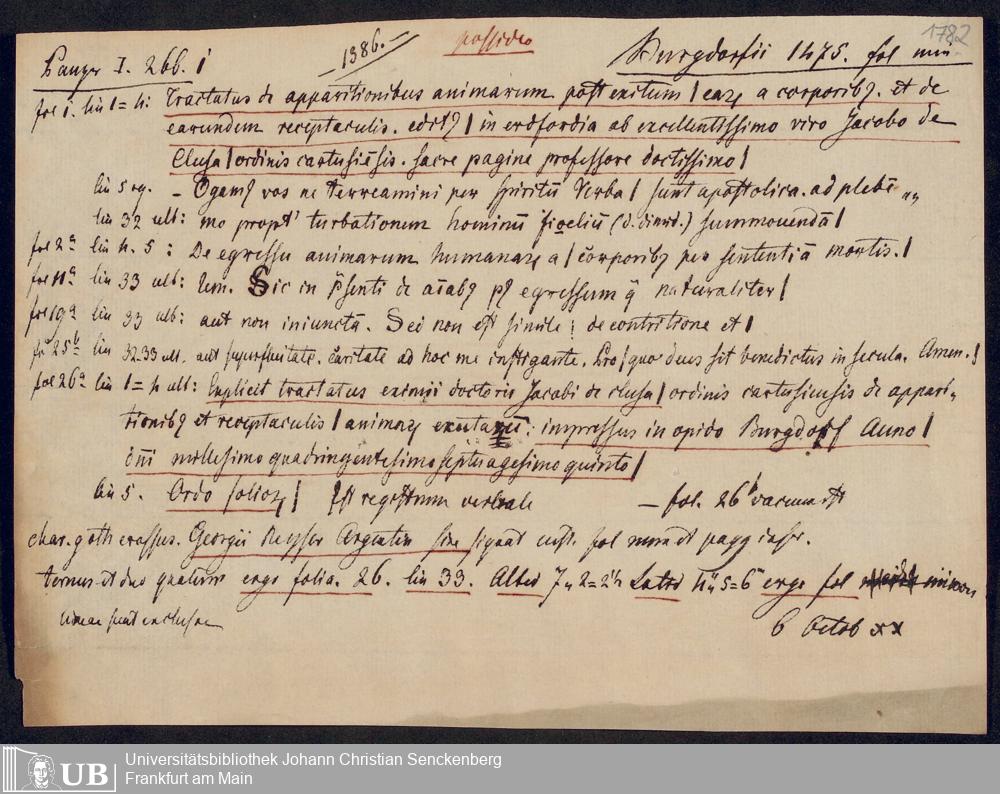 1782
Panzer I. 266. 1 -1386.- possideo Burgdorfii 1475. fol min
fol 1. lin 1=4: Tractatus de apparitionibus animarum post exitum | eaꝝ a corporibꝫ. et de
earundem receptaculis. editꝫ | in erdfordia ab excellentissimo viro Jacobo de
Clusa | ordinis cartusiēsis. sacre pagine professore doctissimo |
lin 5 sq. - Ogamꝫ vos ne terreamini per spiritū Verba | sunt apostolica. ad plebē „
lin 32 ult: mo propt' turbationem hominū fidelium summouendā |
fol 2ª lin 4. 5: De egressu animarum humanaꝝ a | corporibꝫ per sententiā mortis. |
fol 11ª lin 33 ult: Sic in p̄senti de aīabꝫ pꝫ egressum q̄ naturaliter |
fol 19ª lin 33 ult: aut non iniunctā. Sed non est simile | de contritione et |
fol 25ᵇ lin 32.33 ult. aut superfluitate. caritate ad hoc me instigante. Pro | quo deus sit benedictus in secula. Amen. |
fol 26ª lin 1=4 ult: Explicit tractatus eximii doctoris Jacobi de clusa | ordinis cartusiensis de appari-
tionibꝫ et receptaculis | animaꝝ impressus in opido Burgdorf Anno |
dn̄i millesimo quadringentesimo septuagesimo quinto |
lin 5. Ordo folioꝝ | Est registrum verbale - fol. 26ᵇ vacuum est
char. goth crassus. Georgii Reyser Argentin sine signat cust. fol num et pagg inscr.
ternus et duo quaterni ergo folia. 26. lin 33. Altid 7„ 2=2½ Latid 4„ 5=6‴ ergo fol minori
lineae sunt inclusae 6 Octob xx
UB Universitätsbibliothek Johann Christian Senckenberg
Frankfurt am Main